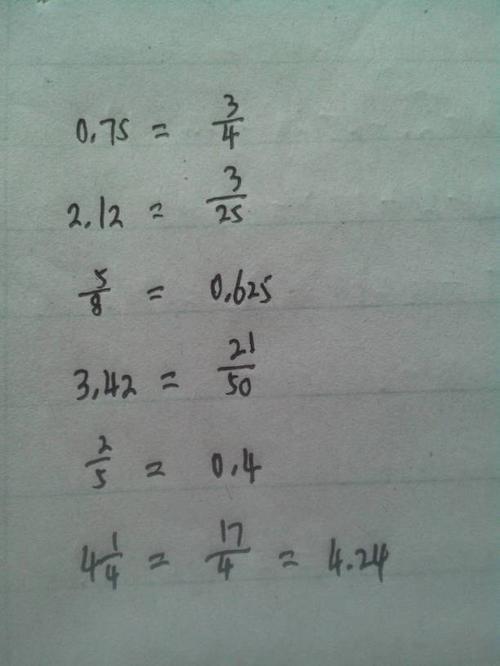 0.75 = 3/4
2.12 = 3/25
5/8 = 0.625
3.42 = 21/50
2/5 = 0.4
4 1/4 = 17/4 = 4.24